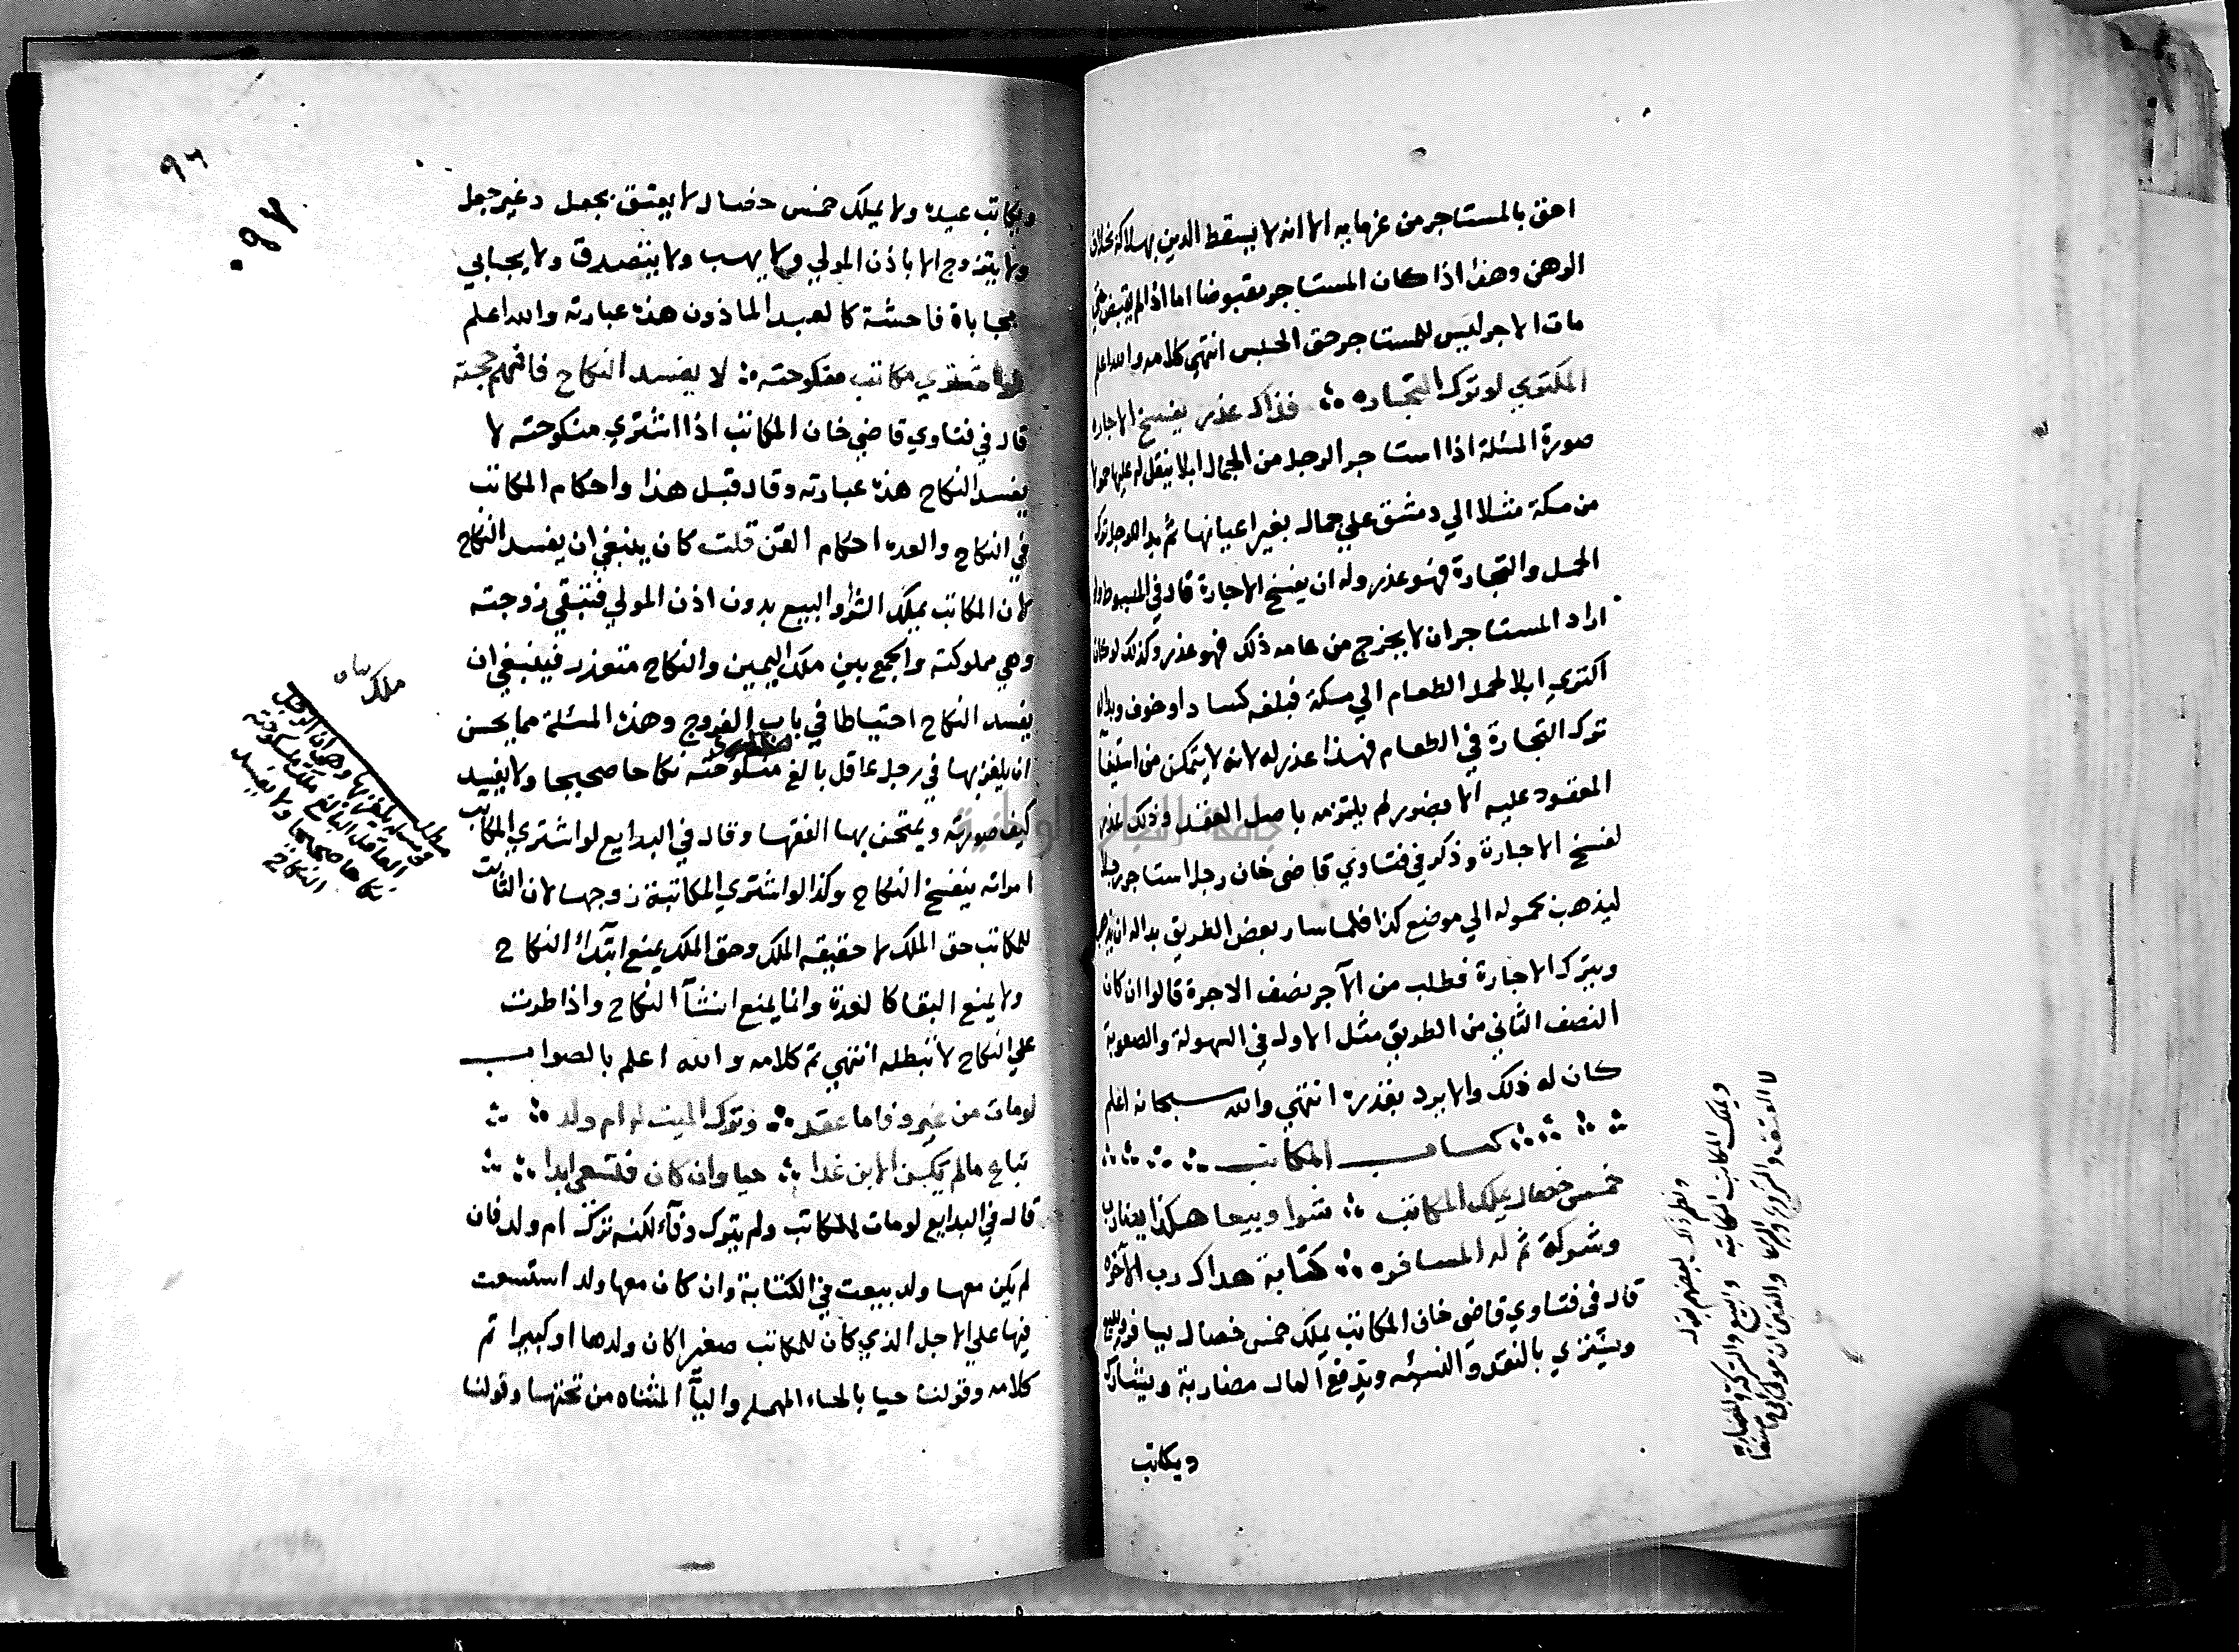 احق بالمستاجر من غرمايه الا انه لا يسقط الدين بهلاكه بخلاف
الرهن وهذا اذا كان المستاجر مقبوضا اما اذا لم يقبض حتي
مات الاجر ليس للمستاجر حق الحبس انتهي كلامه والله اعلم
المكتري لو ترك التجاره ∴ فذاك عذر يفسخ الاجاره
صورة المسئلة اذا استاجر الرجل من الجمال ابلا ينقل له عليها حمولا
من مكة مثلا الي دمشق علي جمال بغير اعيانها ثم بدا للرجل ترك
الحمل والتجارة فهو عذر وله ان يفسخ الاجارة قال في المبسوط ولو
اراد المستاجر ان لا يخرج من عامه ذلك فهو عذر وكذلك لو كان
اكتري ابلا لحمل الطعام الي مكة فبلغه كساد او خوف وبدا له
ترك التجارة في الطعام فهذا عذر له لانه لا يتمكن من استيفا
المعقود عليه الا بضرر لم يلتزمه باصل العقد وذلك عذر
لفسخ الاجارة وذكر في فتاوي قاضي خان رجل استاجر رجلا
ليذهب بحموله الي موضع كذا فلما سار بعض الطريق بدا له ان يذهب
ويترك الاجارة فطلب من الآجر نصف الاجرة قالوا ان كان
النصف الثاني من الطريق مثل الاول في السهولة والصعوبة
كان له ذلك والا يرد بقدره انتهي والله سبحانه اعلم
∴ ∴ ∴ كتاب المكاتب ∴ ∴ ∴
خمس خصال يملك المكاتب ∴ شرا وبيعا هكذا يضارب
وشركة ثم له المسافره ∴ كتابة هداك رب الآخره
قال في فتاوي قاضي خان المكاتب يملك خمس خصال يسافر ويبيع
ويشتري بالنقد والنسئه ويدفع المال مضاربة ويشارك
ويكاتب
ونظم ذلك بعضهم بقوله
ويملك المكاتب المكاتبه والبيع والشركة والمضاربة
٩٦
٠٩٧
ويكاتب عبيده ولا يملك خمس خصال لا يعتق بجعل وغير جعل
ولا يتزوج الا باذن المولي ولا يهب ولا يتصدق ولا يحابي
محاباة فاحشة كالعبد الماذون هذه عبارته والله اعلم
لو اشتري مكاتب منكوحته ∴ لا يفسد النكاح فافهم حجته
قال في فتاوي قاضي خان المكاتب اذا اشتري منكوحته لا
يفسد النكاح هذه عبارته وقال قبل هذا واحكام المكاتب
في النكاح والعده احكام القن قلت كان ينبغي ان يفسد النكاح
لان المكاتب يملك الشرا والبيع بدون اذن المولي فتبقي زوجته
وهي مملوكته والجمع بين ملك اليمين والنكاح متعذر فينبغي ان
يفسد النكاح احتياطا في باب الفروج وهذه المسئلة مما يحسن
ان يلغز بها في رجل عاقل بالغ منكوحته نكاحا صحيحا ولا يفسد
كيف صورته ويمتحن بها الفقها وقال في البدايع لو اشتري المكاتب
امراته ينفسخ النكاح وكذا لو اشتري المكاتبة زوجها لان الثابت
للمكاتب حق الملك لا حقيقه الملك وحق الملك يمنع ابتدآء النكاح
ولا يمنع البقا كالعدة وانما يمنع انشآ النكاح واذا طرت
علي النكاح لا تبطله انتهي تم كلامه والله اعلم بالصواب
لو مات من غير وفاما عقد ∴ وترك الميت له ام ولد ∴ ∴
تباع ما لم يكن الابن غدا ∴ حيا وان كان فلتسعي ابدا ∴ ∴
قال في البدايع لو مات المكاتب ولم يترك وفآء لكنه ترك ام ولد فان
لم يكن معها ولد بيعت في الكتابة وان كان معها ولد استسعت
فيها علي الاجل الذي كان للمكاتب صغيرا كان ولدها او كبيرا تم
كلامه وقولنا حيا بالحاء المهمله واليآ المثناه من تحتها وقولنا
العاقل البالغ ملك منكوحته
نكاحا صحيحا ولا يفسد
النكاح